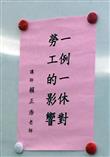 一例一休對
勞工的影響
講師 賴正浩 老師